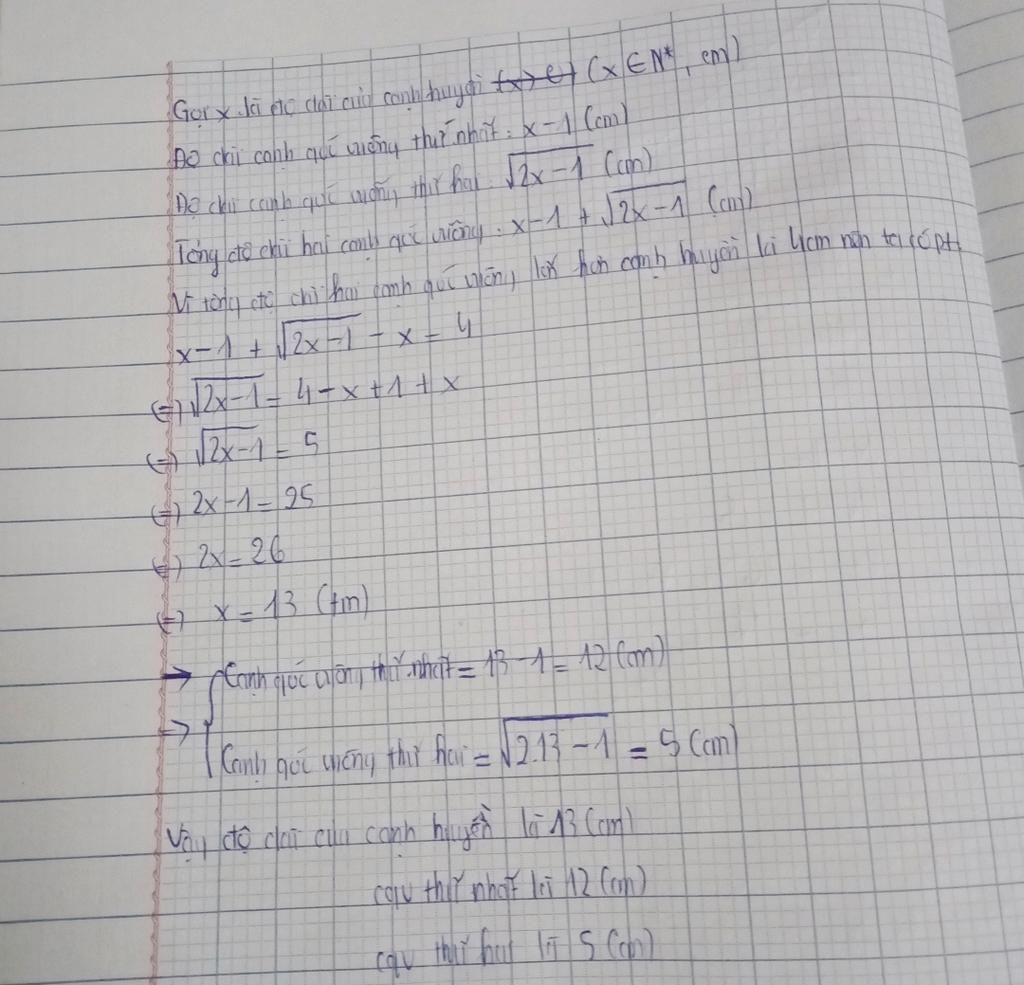 Gọi x là độ dài của cạnh huyền (x ∈ N*, cm)
Độ dài cạnh góc vuông thứ nhất: x-1 (cm)
Độ dài cạnh góc vuông thứ hai: √(2x-1) (cm)
Tổng độ dài hai cạnh góc vuông: x-1 + √(2x-1) (cm)
Vì tổng độ dài hai cạnh góc vuông lớn hơn cạnh huyền là 4cm nên ta có pt:
x-1 + √(2x-1) - x = 4
(=) √(2x-1) = 4-x+1+x
(=) √(2x-1) = 5
(=) 2x-1 = 25
(=) 2x = 26
(=) x = 13 (tm)
→ { Cạnh góc vuông thứ nhất = 13-1 = 12 (cm)
→ { Cạnh góc vuông thứ hai = √(2.13-1) = 5 (cm)
Vậy độ dài của cạnh huyền là 13 (cm)
cgv thứ nhất là 12 (cm)
cgv thứ hai là 5 (cm)